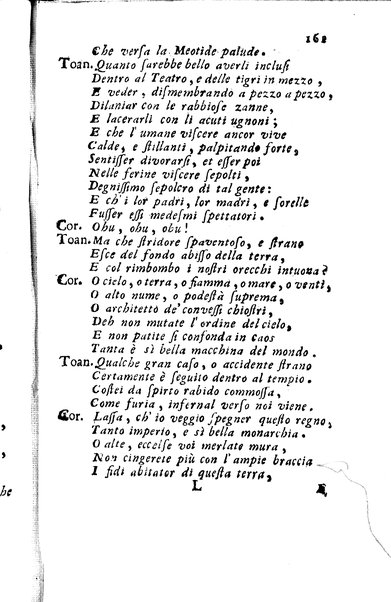 161
Che verſa la Meotide palude.
Toan. Quanto ſarebbe bello averli incluſi
Dentro al Teatro, e delle tigri in mezzo,
E veder, diſmembrando a pezzo a pezzo,
Dilaniar con le rabbioſe zanne,
E lacerarli con li acuti ugnoni;
E che l'umane viſcere ancor vive
Calde, e ſtillanti, palpitando forte,
Sentiſſer divorarſi, et eſſer poi
Nelle ferine viſcere ſepolti,
Degniſſimo ſepolcro di tal gente:
E ch'i lor padri, lor madri, e ſorelle
Fuſſer eſſi medeſmi ſpettatori.
Cor. Ohu, ohu, ohu!
Toan. Ma che ſtridore ſpaventoſo, e ſtrano
Eſce del fondo abiſſo della terra,
E col rimbombo i noſtri orecchi intuona?
Cor. O cielo, o terra, o fiamma, o mare, o venti,
O alto nume, o podeſtà ſuprema,
O architetto de' conveſſi chioſtri,
Deh non mutate l'ordine del cielo,
E non patite ſi confonda in caos
Tanta è sì bella macchina del mondo.
Toan. Qualche gran caſo, o accidente ſtrano
Certamente è ſeguito dentro al tempio.
Coſtei da ſpirto rabido commoſſa,
Come furia, infernal verſo noi viene.
Cor. Laſſa, ch'io veggio ſpegner queſto regno,
Tanto imperio, e sì bella monarchia.
O alte, eccelſe voi merlate mura,
Non cingerete più con l'ampie braccia
I fidi abitator di queſta terra,
L
he